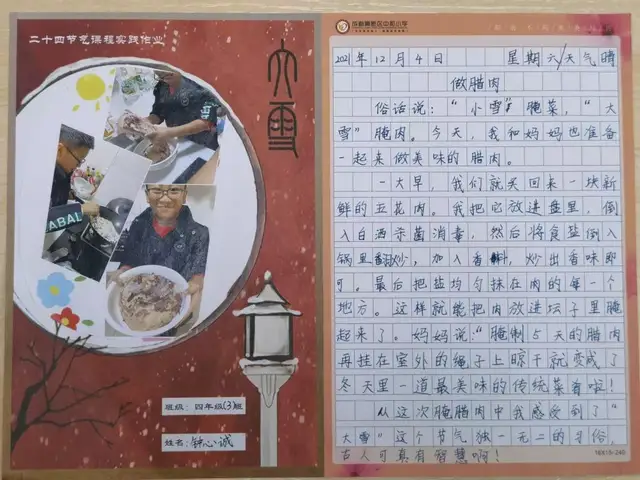 二十四节气课程实践作业
大雪
班级: 四年级(3)班
姓名: 钟心诚
2021年12月4日 星期六/天气晴
做腊肉
俗话说:“小雪”腌菜,“大
雪”腌肉。今天,我和妈妈也准备
一起来做美味的腊肉。
一大早,我们就买回来一块新
鲜的五花肉。我把它放进盘里,倒
入白酒杀菌消毒,然后将食盐倒入
锅里翻炒,加入香料,炒出香味即
可。最后把盐均匀抹在肉的每一个
地方。这样就能把肉放进坛子里腌
起来了。妈妈说:“腌制5天的腊肉
再挂在室外的绳子上晾干就变成了
冬天里一道最美味的传统菜肴啦!
从这次腌腊肉中我感受到了“
大雪”这个节气独一无二的习俗,
古人可真有智慧啊!
16X15=240